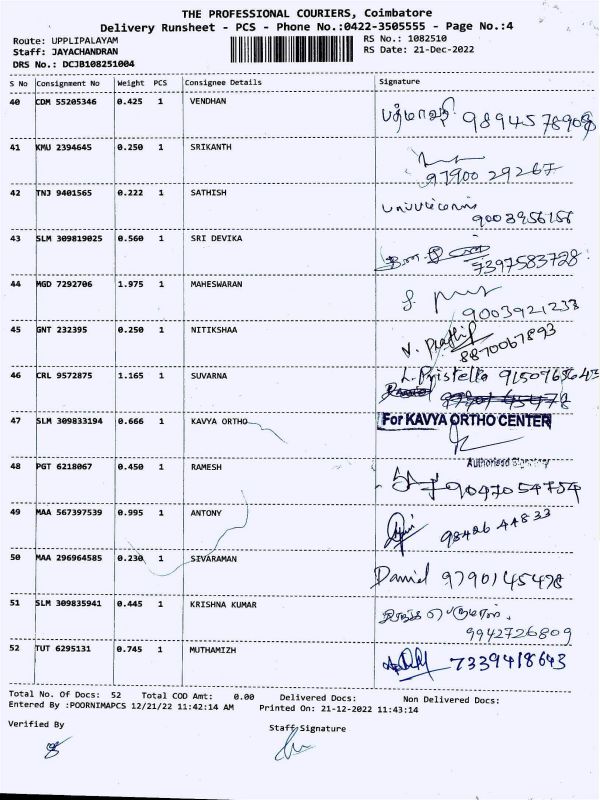 THE PROFESSIONAL COURIERS, Coimbatore
Delivery Runsheet - PCS - Phone No.:0422-3505555 - Page No.:4
Route: UPPLIPALAYAM RS No.: 1082510
Staff: JAYACHANDRAN RS Date: 21-Dec-2022
DRS No.: DCJB108251004
S No Consignment No Weight PCS Consignee Details Signature
40 CDM 55205346 0.425 1 VENDHAN
41 KMU 2394645 0.250 1 SRIKANTH
97900 29267
42 TNJ 9401565 0.222 1 SATHISH
9003956156
43 SLM 309819025 0.560 1 SRI DEVIKA
7397583728
44 MGD 7292706 1.975 1 MAHESWARAN
9003921233
45 GNT 232395 0.250 1 NITIKSHAA
8870067893
46 CRL 9572875 1.165 1 SUVARNA L. Pristella
47 SLM 309833194 0.666 1 KAVYA ORTHO For KAVYA ORTHO CENTER
Authorised Signatory
48 PGT 6218067 0.450 1 RAMESH 9047054754
49 MAA 567397539 0.995 1 ANTONY 98426 44833
50 MAA 296964585 0.230 1 SIVARAMAN Daniel 9790145498
51 SLM 309835941 0.445 1 KRISHNA KUMAR
9942726809
52 TUT 6295131 0.745 1 MUTHAMIZH 7339418643
Total No. Of Docs: 52 Total COD Amt: 0.00 Delivered Docs: Non Delivered Docs:
Entered By :POORNIMAPCS 12/21/22 11:42:14 AM Printed On: 21-12-2022 11:43:14
Verified By Staff Signature